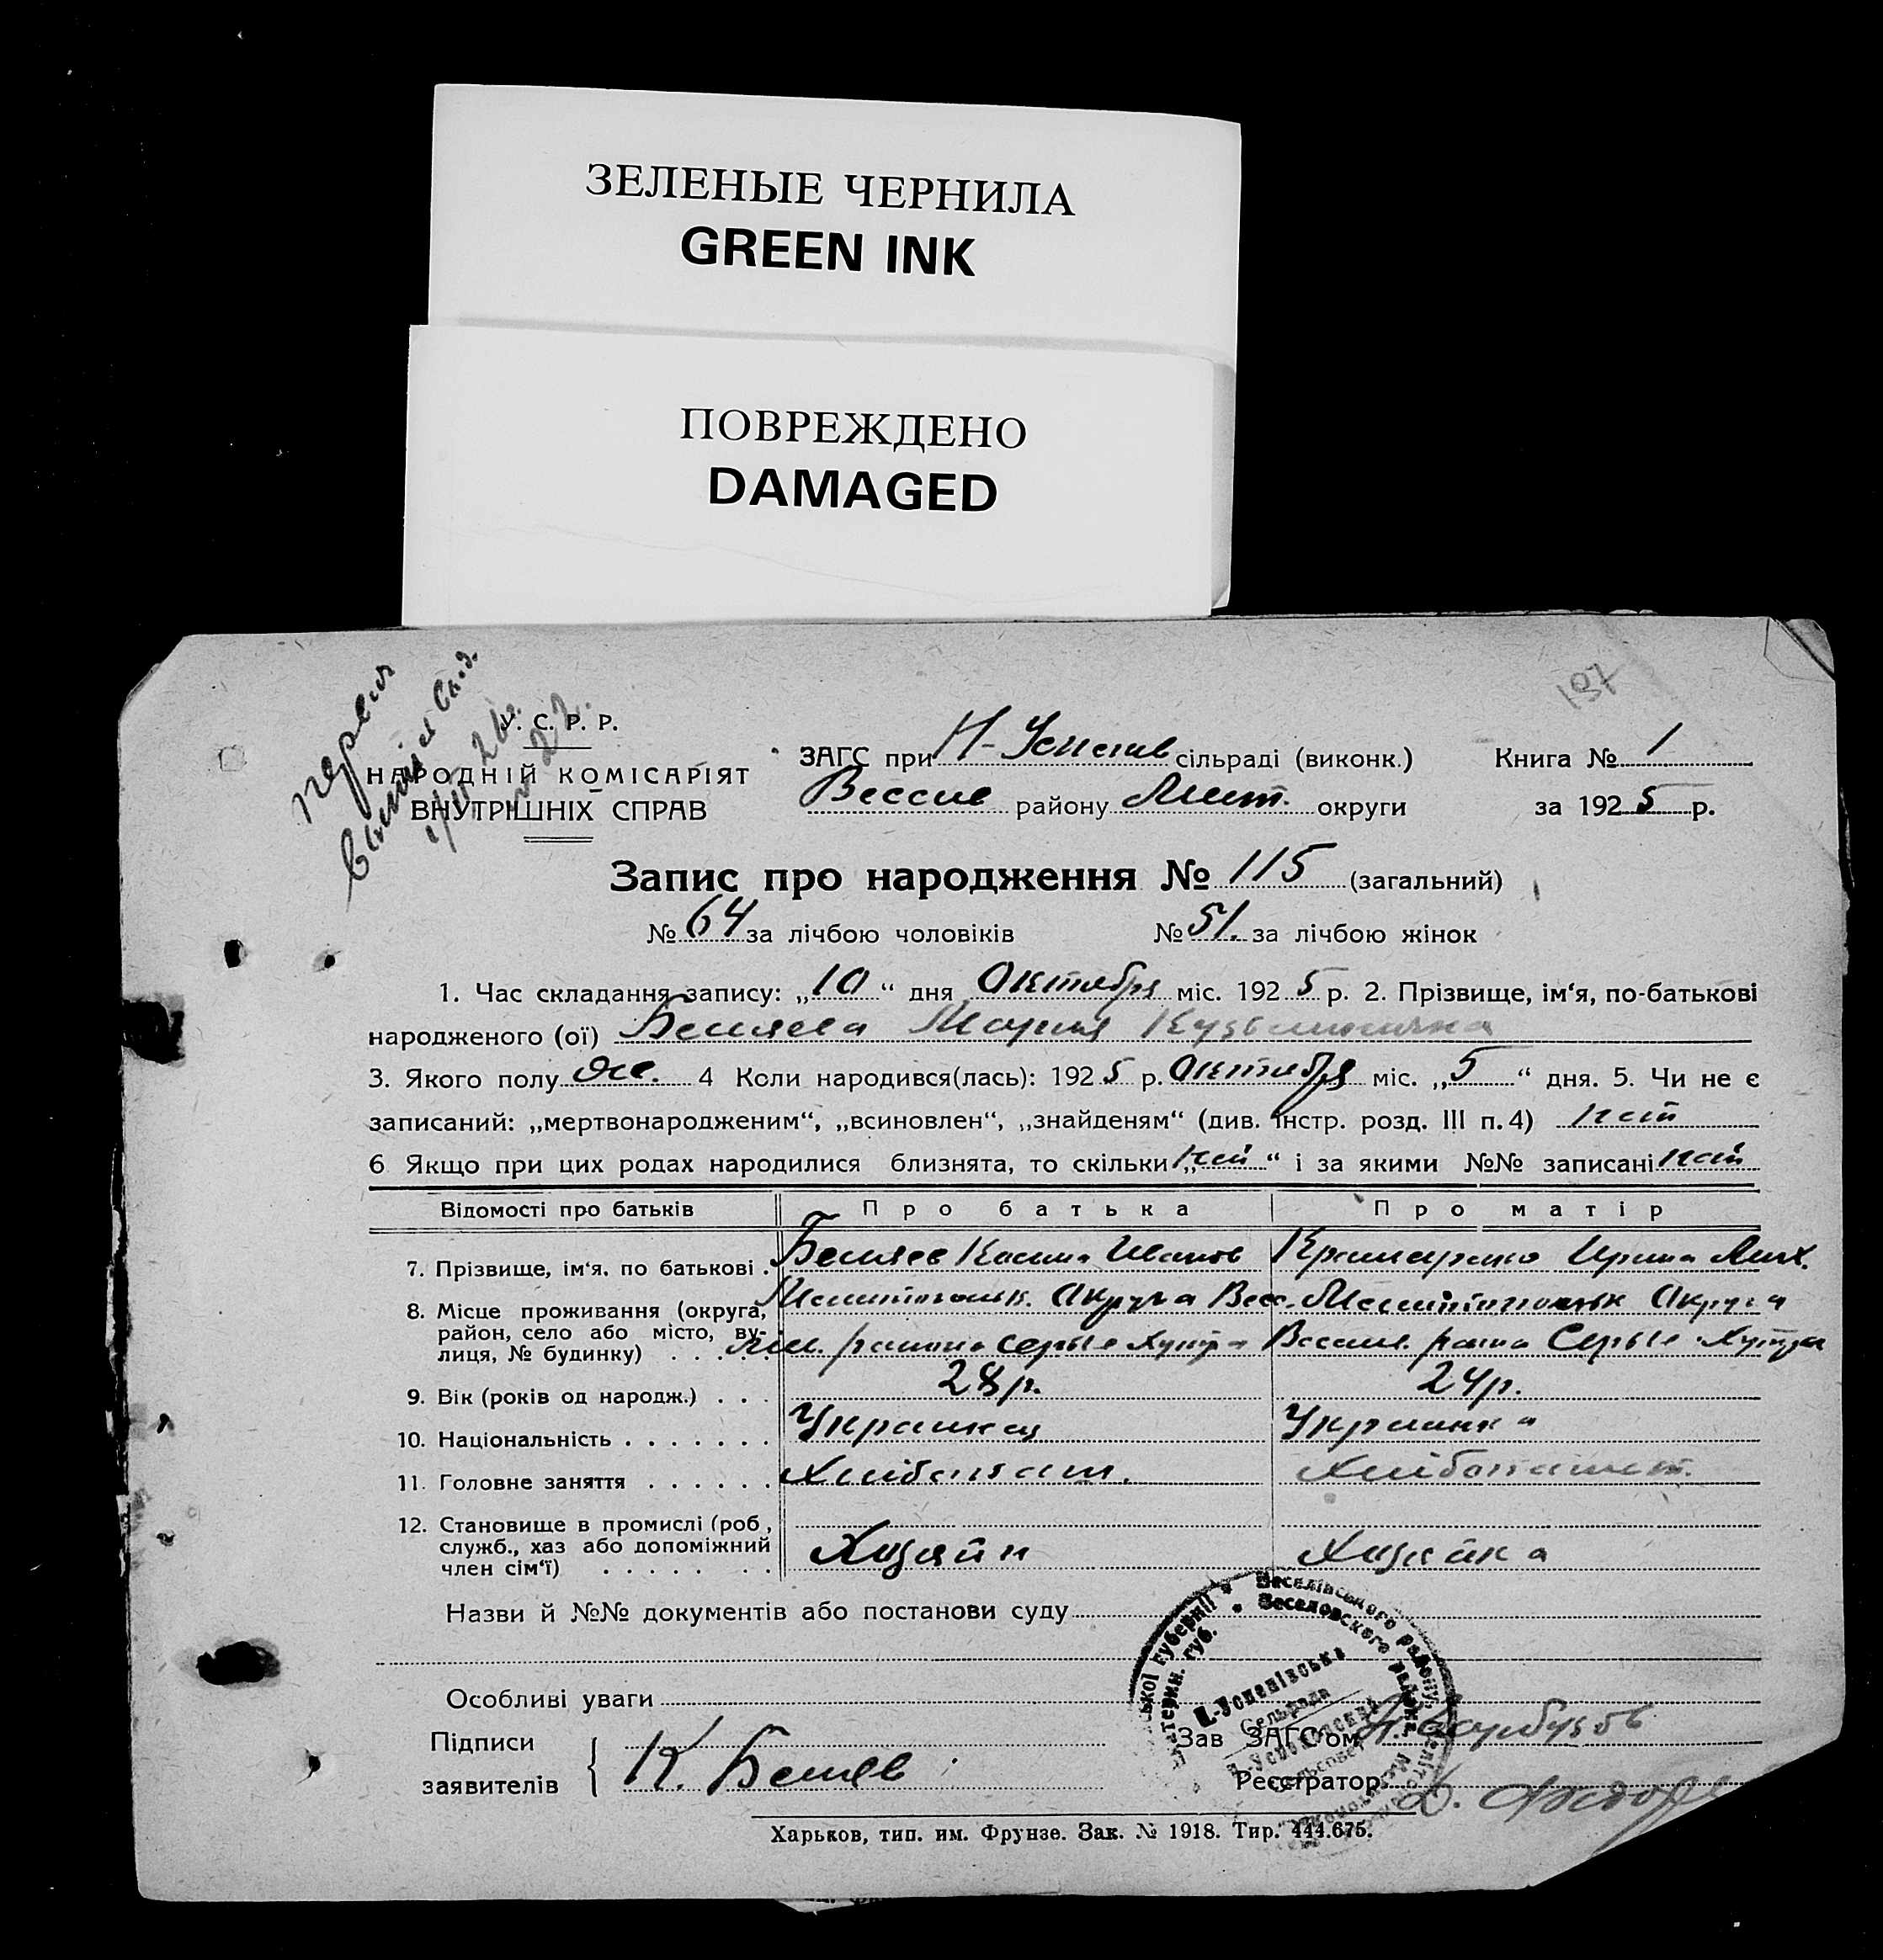 ЗЕЛЕНЫЕ ЧЕРНИЛА
GREEN INK
ПОВРЕЖДЕНО
DAMAGED
197
У. С. Р. Р.
НАРОДНІЙ КОМІСАРІЯТ
ВНУТРІШНІХ СПРАВ
ЗАГС при Н-Успенив сільраді (виконк.) Книга № 1
району Мелит. округи за 1925 р.
Запис про народження № 115 (загальний)
№ 64 за лічбою чоловіків № 51. за лічбою жінок
1. Час складання запису: „10“ дня Октября міс. 1925 р. 2. Прізвище, ім‘я, по-батькові
народженого (ої) Беляева Мария
3. Якого полу жен. 4 Коли народився(лась): 1925 р. Октября міс. „5“ дня. 5. Чи не є
записаний: „мертвонародженим“, „всиновлен“, „знайденям“ (див. інстр. розд. III п. 4) нет
6 Якщо при цих родах народилися близнята, то скільки „нет“ і за якими №№ записані нет
Відомості про батьків Про батька Про матір
7. Прізвище, ім‘я, по батькові . Беляев Косьма Иванов Ирина Мих.
8. Місце проживання (округа, Округа Весе- Округа
район, село або місто, ву- району Серые Хутора Весел. району Серые Хутора
лиця, № будинку) . . . . .
9. Вік (років од народж.) . . . 28 р. 24 р.
10. Національність . . . . . . . Украинец Украинка
11. Головне заняття . . . . . . Хлібопаш.
12. Становище в промислі (роб,
служб., хаз або допоміжний Хозяйн Хозяйка
член сім‘ї) . . . . . . .
Назви й №№ документів або постанови суду
Особливі уваги
Підписи
заявителів К. Беляев
Зав ЗАГС‘ом
Реєстратор:
Веселівського району,
Веселовского района
-Успенівська
Сельрада
Успеновский
сельсовет
Харьков, тип. им. Фрунзе. Зак. № 1918. Тир. 444.675.